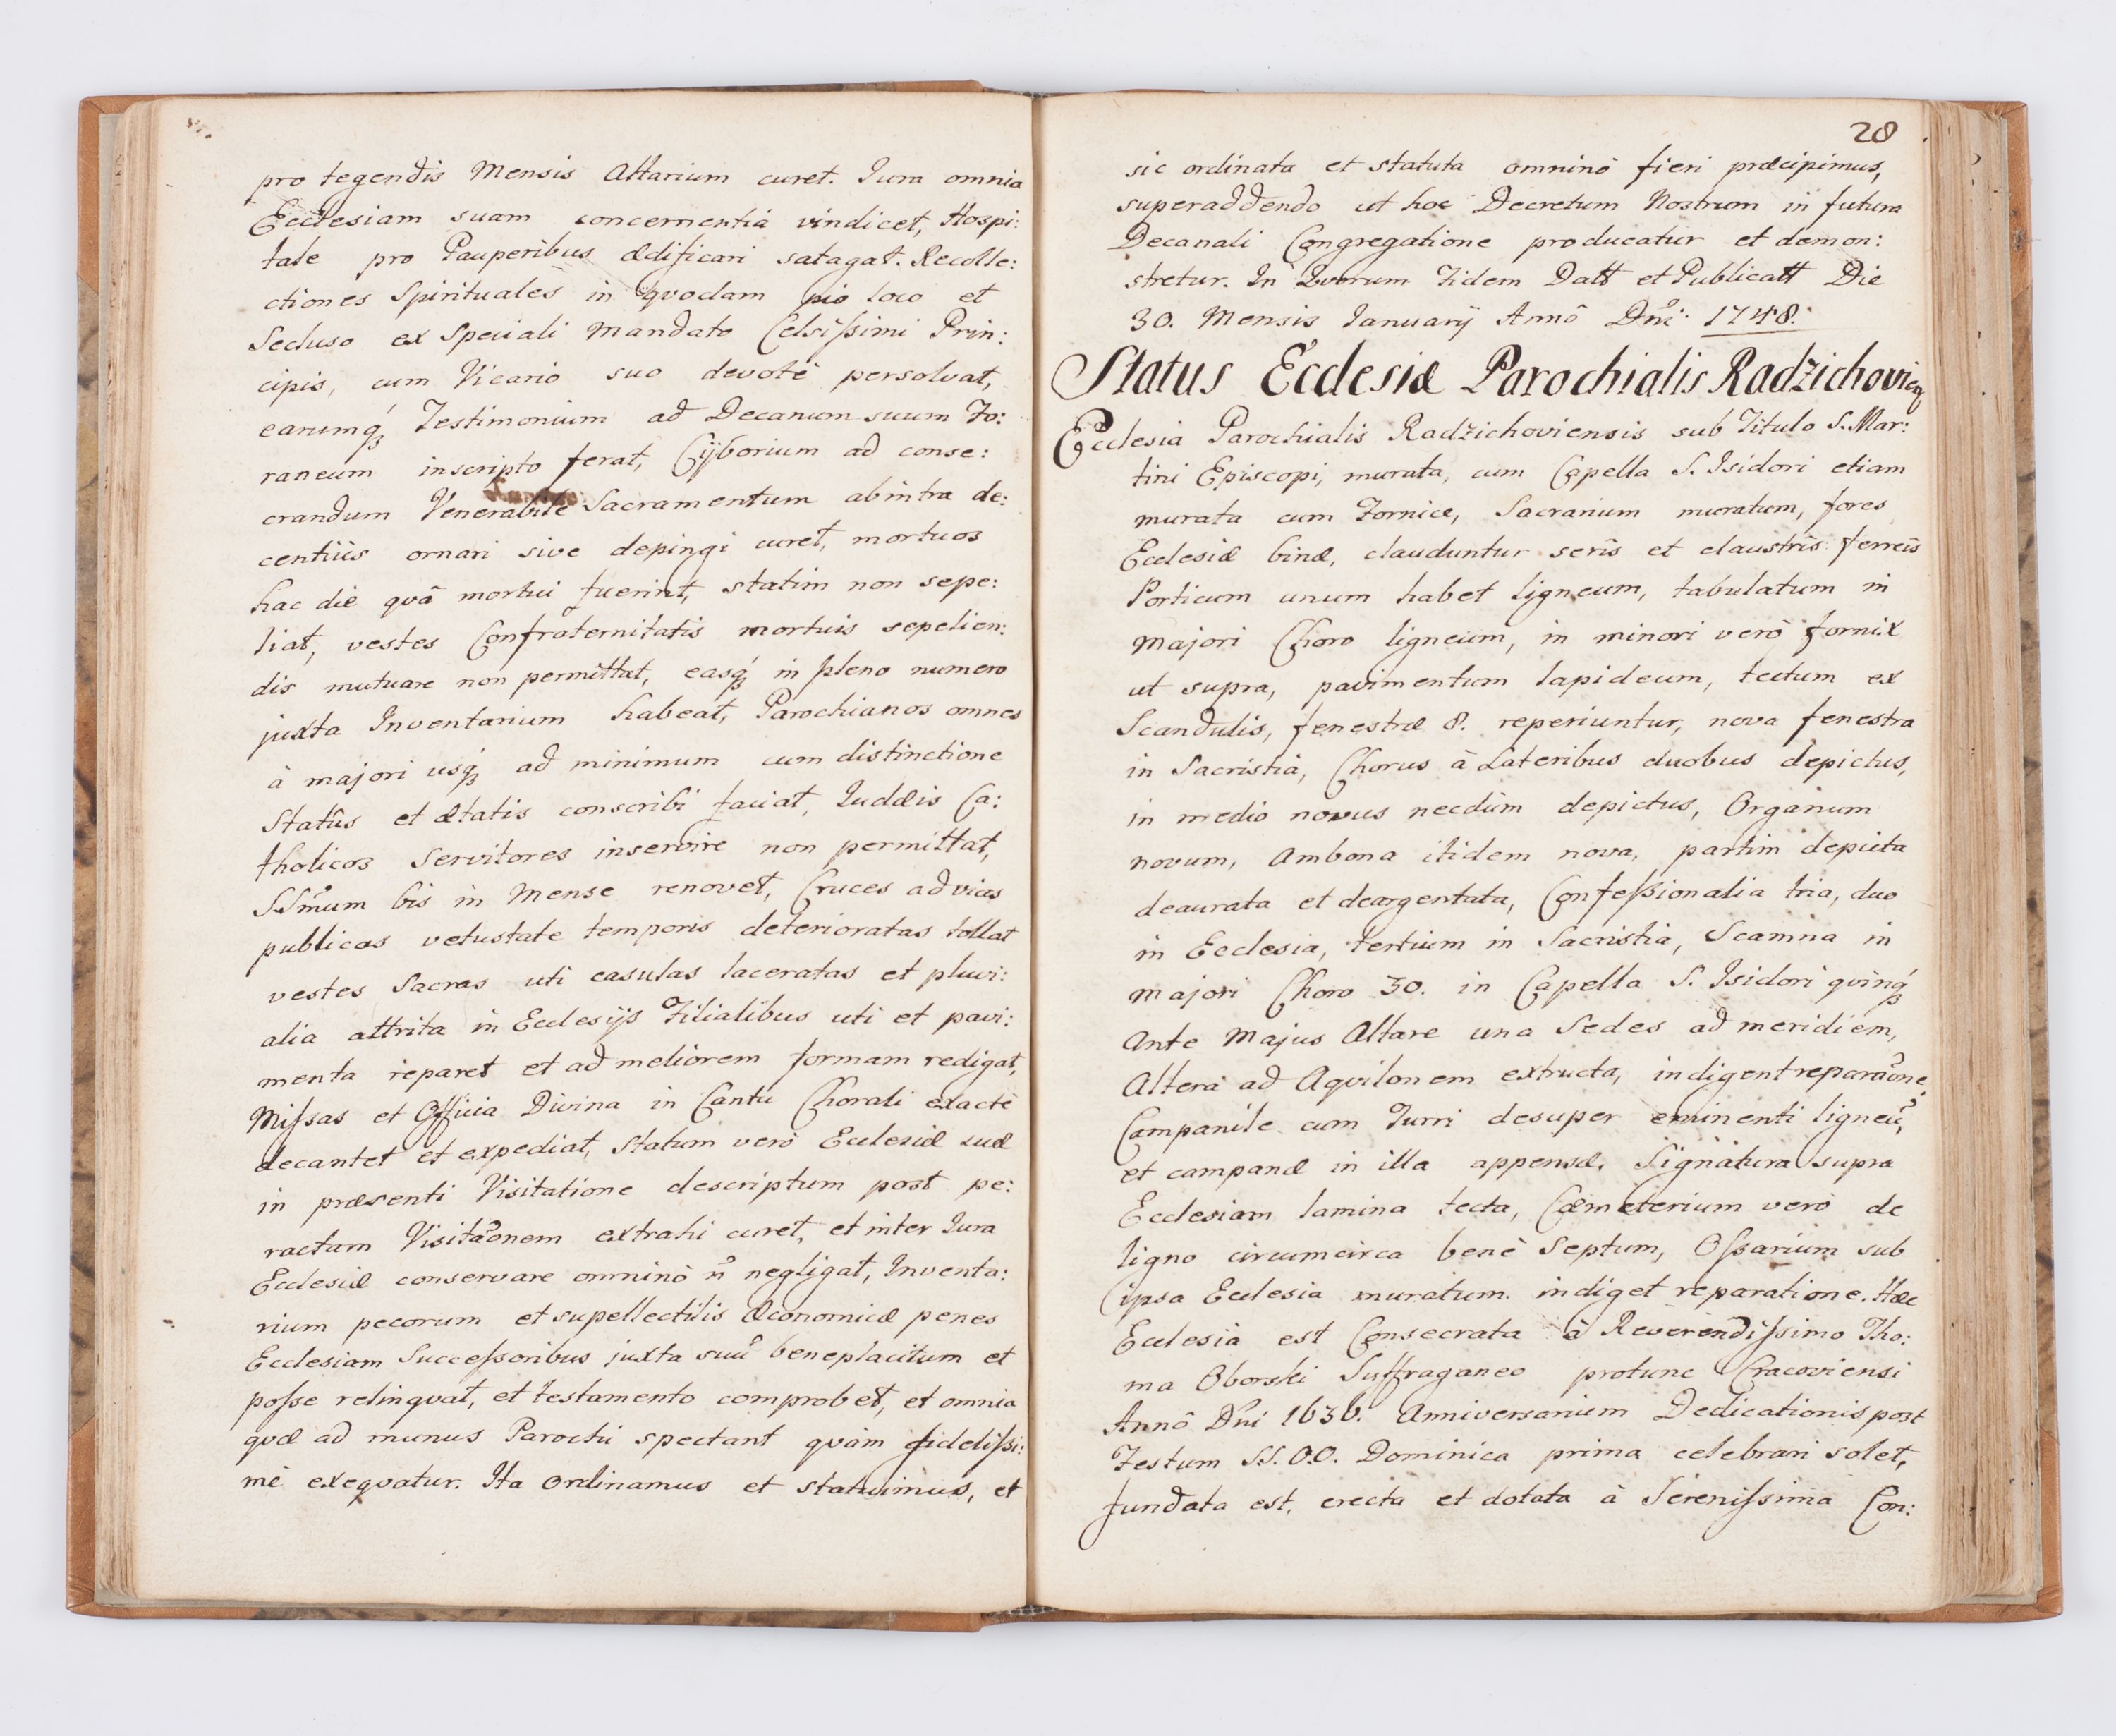 pro tegendis Mensis Altarium curet. Iura omnia
Ecclesiam suam concernentia vindicet, Hospi:
tale pro Pauperibus ædificari satagat. Recolle:
ctiones Spirituales in quodam pio loco et
Secluso ex Speciali Mandato Celsissimi Prin:
cipis, cum Vicario suo devotè persolvat,
earumq́ Testimonium ad Decanum suum Fo:
raneum inscripto ferat, Cyborium ad conse:
crandum Venerabile Sacramentum abintra de:
centiùs ornari sive depingi curet, mortuos
hac die quâ mortui fuerint, statim non sepe:
liat, vestes Confraternitatis mortuis sepelien:
dis mutuare non permittat, easq́ in pleno numero
juxta Inventarium habeat, Parochianos omnes
à majori usq́ ad minimum cum distinctione
Statûs et ætatis conscribi faciat, Iudæis Ca:
tholicos Servitores inservire non permittat,
SSm̃um bis in Mense renovet, Cruces ad vias
publicas vetustate temporis deterioratas tollat
vestes Sacras uti casulas laceratas et pluvi:
alia attrita in Ecclesijs Filialibus uti et pavi:
menta reparet et ad meliorem formam redigat,
Missas et Officia Divina in Cantu Chorali exactè
decantet et expediat, Statum verò Ecclesiæ suæ
in præsenti Visitatione descriptum post pe:
ractam Visitãonem extrahi curet, et inter Iura
Ecclesiæ conservare omninò ñ negligat, Inventa:
rium pecorum et supellectilis Œconomicæ penes
Ecclesiam Successoribus juxta suũ beneplacitum et
posse relinquat, et testamento comprobet, et omnia
quæ ad munus Parochi spectant quàm fidelissi:
mè exequatur. Ita Ordinamus et statuimus, et
28
sic ordinata et statuta omninò fieri præcipimus,
superaddendo ut hoc Decretum Nostrum in futura
Decanali Congregatione producatur et demon:
stretur. In Quorum Fidem Datt et Publicatt Die
30. Mensis Ianuarij Annô Dñi 1748.
Status Ecclesiæ Parochialis Radzichovien
Ecclesia Parochialis Radzichoviensis sub Titulo S. Mar:
tini Episcopi, murata, cum Capella S. Isidori etiam
murata cum Fornice, Sacrarium muratum, fores
Ecclesiæ binæ, clauduntur seris et claustris ferreis
Porticum unum habet ligneum, tabulatum in
majori Choro ligneum, in minori verò fornix
ut supra, pavimentum lapideum, tectum ex
Scandulis, fenestræ 8. reperiuntur, nova fenestra
in Sacristia, Chorus à Lateribus duobus depictus,
in medio novus necdùm depictus, Organum
novum, Ambona itidem nova, partim depicta
deaurata et deargentata, Confessionalia tria, duo
in Ecclesia, tertium in Sacristia, Scamna in
majori Choro 30. in Capella S. Isidori quinq́
Ante Majus Altare una Sedes ad meridiem,
Altera ad Aquilonem extructa, indigent reparãone
Campanile cum Turri desuper eminenti ligneũ,
et campanæ in illa appensæ. Signatura supra
Ecclesiam lamina tecta, Cæmeterium verò de
ligno circumcirca benè Septum, Ossarium sub
ipsa Ecclesia muratum indiget reparatione. Hæc
Ecclesia est Consecrata à Reverendissimo Tho:
ma Oborski Suffraganeo protunc Cracoviensi
Annô Dñi 1636. Anniversarium Dedicationis post
Festum SS. OO. Dominica prima celebrari solet,
fundata est, erecta et dotata à Serenissima Con: